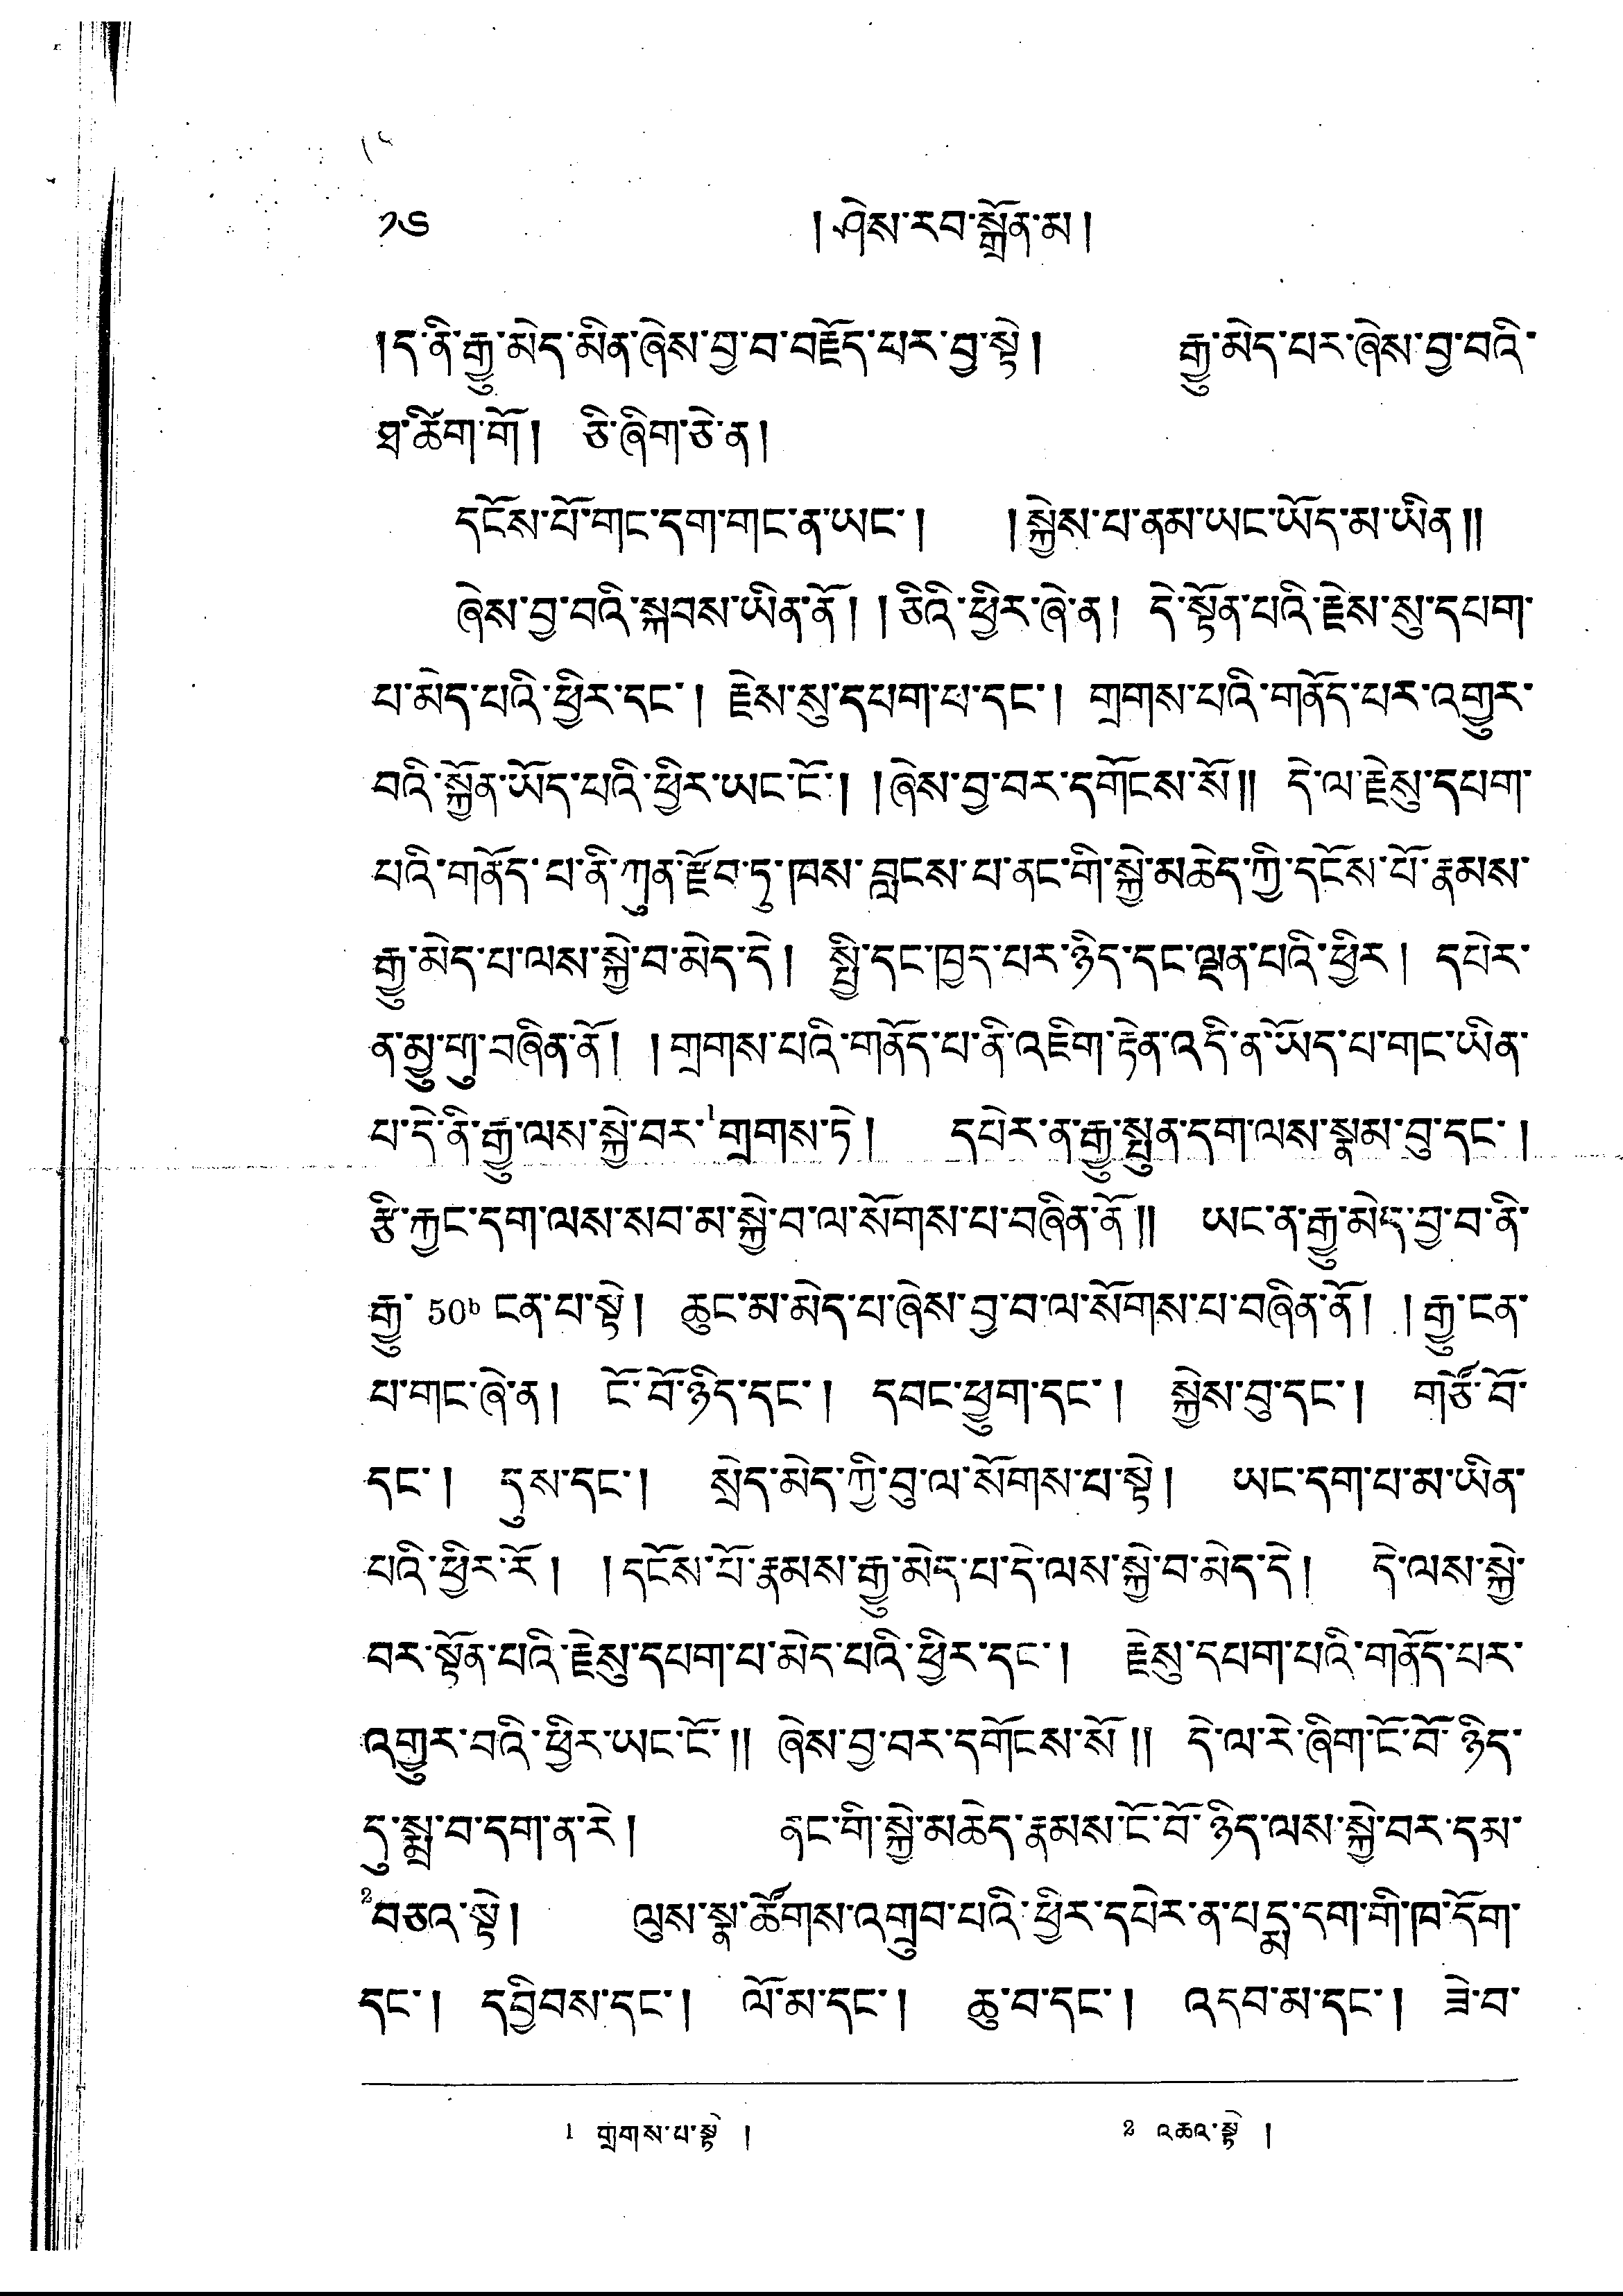 ༡༤ །ཤེས་རབ་སྒྲོན་མ།
།ད་ནི་རྒྱུ་མེད་མིན་ཞེས་བྱ་བ་བརྗོད་པར་བྱ་སྟེ། རྒྱུ་མེད་པར་ཞེས་བྱ་བའི་
ཐ་ཚིག་གོ། ཅི་ཞིག་ཅེ་ན།
དངོས་པོ་གང་དག་གང་ན་ཡང་། །སྐྱེས་པ་ནམ་ཡང་ཡོད་མ་ཡིན༎
ཞེས་བྱ་བའི་སྐབས་ཡིན་ནོ། །ཅིའི་ཕྱིར་ཞེ་ན། དེ་སྟོན་པའི་རྗེས་སུ་དཔག་
པ་མེད་པའི་ཕྱིར་དང་། རྗེས་སུ་དཔག་པ་དང་། གྲགས་པའི་གནོད་པར་འགྱུར་
བའི་སྐྱོན་ཡོད་པའི་ཕྱིར་ཡང་ངོ་། །ཞེས་བྱ་བར་དགོངས་སོ༎ དེ་ལ་རྗེསུ་དཔག་
པའི་གནོད་པ་ནི་ཀུན་རྫོབ་ཏུ་ཁས་བླངས་པ་ནང་གི་སྐྱེ་མཆེད་ཀྱི་དངོས་པོ་རྣམས་
རྒྱུ་མེད་པ་ལས་སྐྱེ་བ་མེད་དེ། སྤྱི་དང་ཁྱད་པར་ཉིད་དང་ལྡན་པའི་ཕྱིར། དཔེར་
ན་མྱུ་གུ་བཞིན་ནོ། །གྲགས་པའི་གནོད་པ་ནི་འཇིག་རྟེན་འདི་ན་ཡོད་པ་གང་ཡིན་
པ་དེ་ནི་རྒྱུ་ལས་སྐྱེ་བར་1གྲགས་ཏེ། དཔེར་ན་རྒྱུ་སྤུན་དག་ལས་སྣམ་བུ་དང་།
རྩི་རྐྱང་དག་ལས་སབ་མ་སྐྱེ་བ་ལ་སོགས་པ་བཞིན་ནོ༎ ཡང་ན་རྒྱུ་མེད་བྱ་བ་ནི་
རྒྱུ་ 50b ངན་པ་སྟེ། ཆུང་མ་མེད་པ་ཞེས་བྱ་བ་ལ་སོགས་པ་བཞིན་ནོ། །རྒྱུ་ངན་
པ་གང་ཞེ་ན། ངོ་བོ་ཉིད་དང་། དབང་ཕྱུག་དང་། སྐྱེས་བུ་དང་། གཙོ་བོ་
དང་། དུས་དང་། སྲེད་མེད་ཀྱི་བུ་ལ་སོགས་པ་སྟེ། ཡང་དག་པ་མ་ཡིན་
པའི་ཕྱིར་རོ། །དངོས་པོ་རྣམས་རྒྱུ་མེད་པ་དེ་ལས་སྐྱེ་བ་མེད་དེ། དེ་ལས་སྐྱེ་
བར་སྟོན་པའི་རྗེསུ་དཔག་པ་མེད་པའི་ཕྱིར་དང་། རྗེསུ་དཔག་པའི་གནོད་པར་
འགྱུར་བའི་ཕྱིར་ཡང་ངོ་༎ ཞེས་བྱ་བར་དགོངས་སོ༎ དེ་ལ་རེ་ཞིག་ངོ་བོ་ཉིད་
དུ་སྨྲ་བ་དག་ན་རེ། ནང་གི་སྐྱེ་མཆེད་རྣམས་ངོ་བོ་ཉིད་ལས་སྐྱེ་བར་དམ་
2བཅའ་སྟེ། ལུས་སྣ་ཚོགས་འགྲུབ་པའི་ཕྱིར་དཔེར་ན་པདྨ་དག་གི་ཁ་དོག་
དང་། དབྱིབས་དང་། ལོ་མ་དང་། ཆུ་བ་དང་། འདབ་མ་དང་། ཟེ་བ་
1 གྲགས་པ་སྟེ། 2 འཆའ་སྟེ།